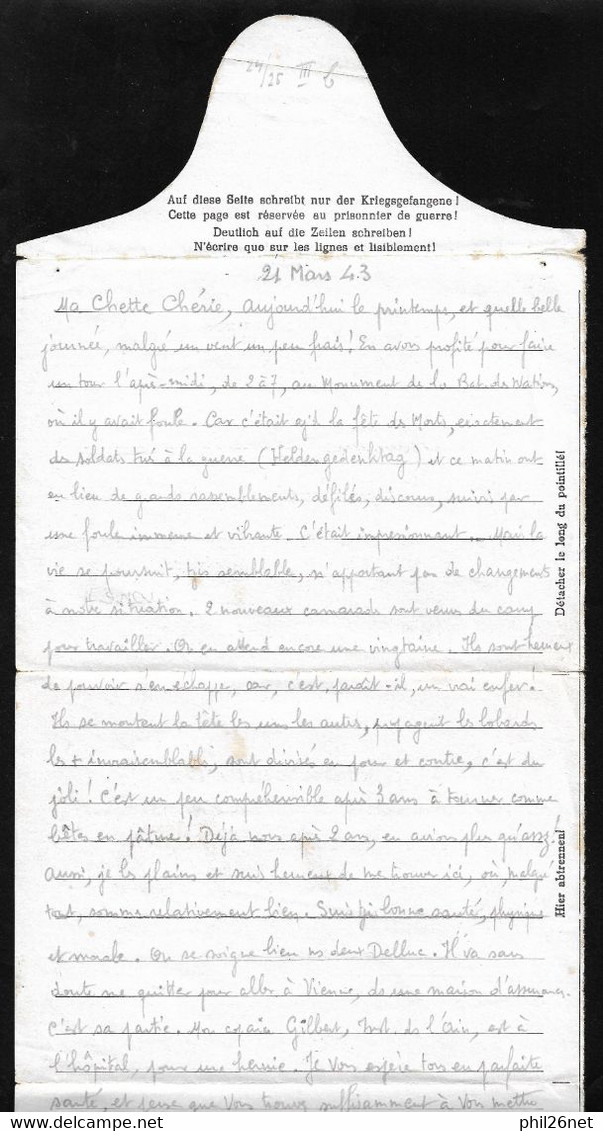 24/25 III
Auf diese Seite schreibt nur der Kriegsgefangene!
Cette page est réservée au prisonnier de guerre!
Deutlich auf die Zeilen schreiben!
N'écrire que sur les lignes et lisiblement!
21 Mars 43
Ma Chette Chérie, aujourd'hui le printemps, et quelle belle
journée, malgré un vent un peu frais! En avons profité pour faire
un tour l'après-midi, de 2 à 7, au Monument de la Bat. des Nations,
où il y avait foule. Car c'était ajd la fête des Morts, exactement
des soldats tués à la guerre (Heldengedenktag) et ce matin ont
eu lieu de grands rassemblements, défilés, discours, suivis par
une foule immense et vibrante. C'était impressionnant. Mais la
vie se poursuit, très semblable, n'apportant pas de changements
à notre situation. 2 nouveaux camarades sont venus du camp
pour travailler. On en attend encore une vingtaine. Ils sont heureux
de pouvoir s'en échapper, car, c'est, paraît-il, un vrai enfer!
Ils se montent la tête les uns les autres, propagent les bobards
les + invraisemblables, sont divisés en pour et contre, c'est du
joli! C'est un peu compréhensible après 3 ans à tourner comme
bêtes en pâture! Déjà nous après 2 ans, en avions plus qu'assez!
Aussi, je les plains et suis heureux de me trouver ici, où, malgré
tout, sommes relativement bien. Suis très bonne santé, physique
et morale. On se soigne bien ns deux Delluc. Il va sans
doute me quitter pour aller à Vienne, ds une maison d'assurances.
C'est sa partie. Mon copain Gilbert, Inst. ds l'Ain, est à
l'hôpital, pour une hernie. Je Vous espère tous en parfaite
santé, et pense que Vous trouvez suffisamment à Vous mettre
Détacher le long du pointillé!
Hier abtrennen!
phil26net
www.delcampe.net